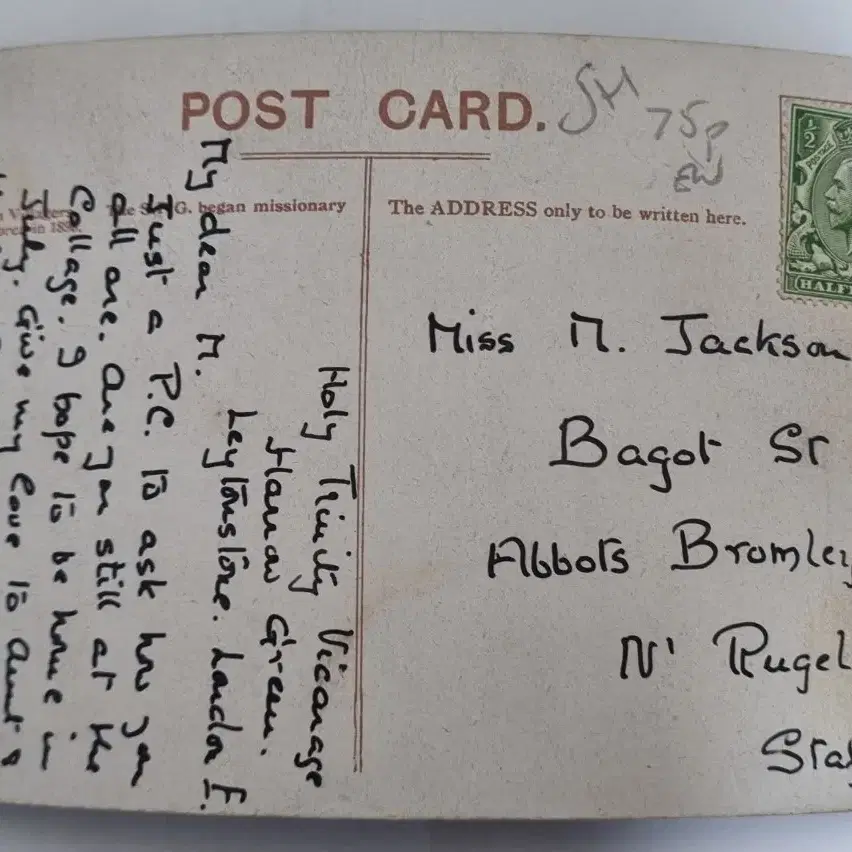 POST CARD.
SH 75p
EW
G. began missionary
in 188
The ADDRESS only to be written here.
½
POSTAGE
HALF
Miss M. Jackson
Bagot St
Abbots Bromley
Nr Rugel
Sta
Holy Trinity Vicarage
Harrow Green.
Leytonstone. London E.
My dear M.
Just a P.C. to ask how you
all are. Are you still at the
Collage. I hope to be home in
July. Give my love to Aunt &